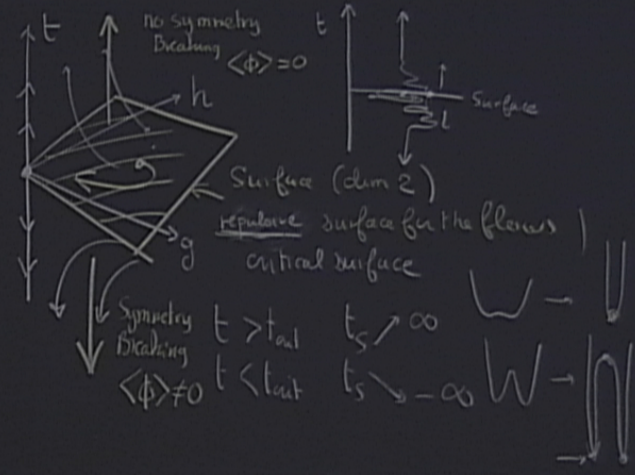 t
no symmetry
Breaking
<ϕ>=0
h
g
t
Surface
Surface (dim 2)
repulsive surface for the flows
critical surface
Symmetry
Breaking
<ϕ>≠0
t > t
t_s ↗ ∞
t < t_crit
t_s ↘ -∞